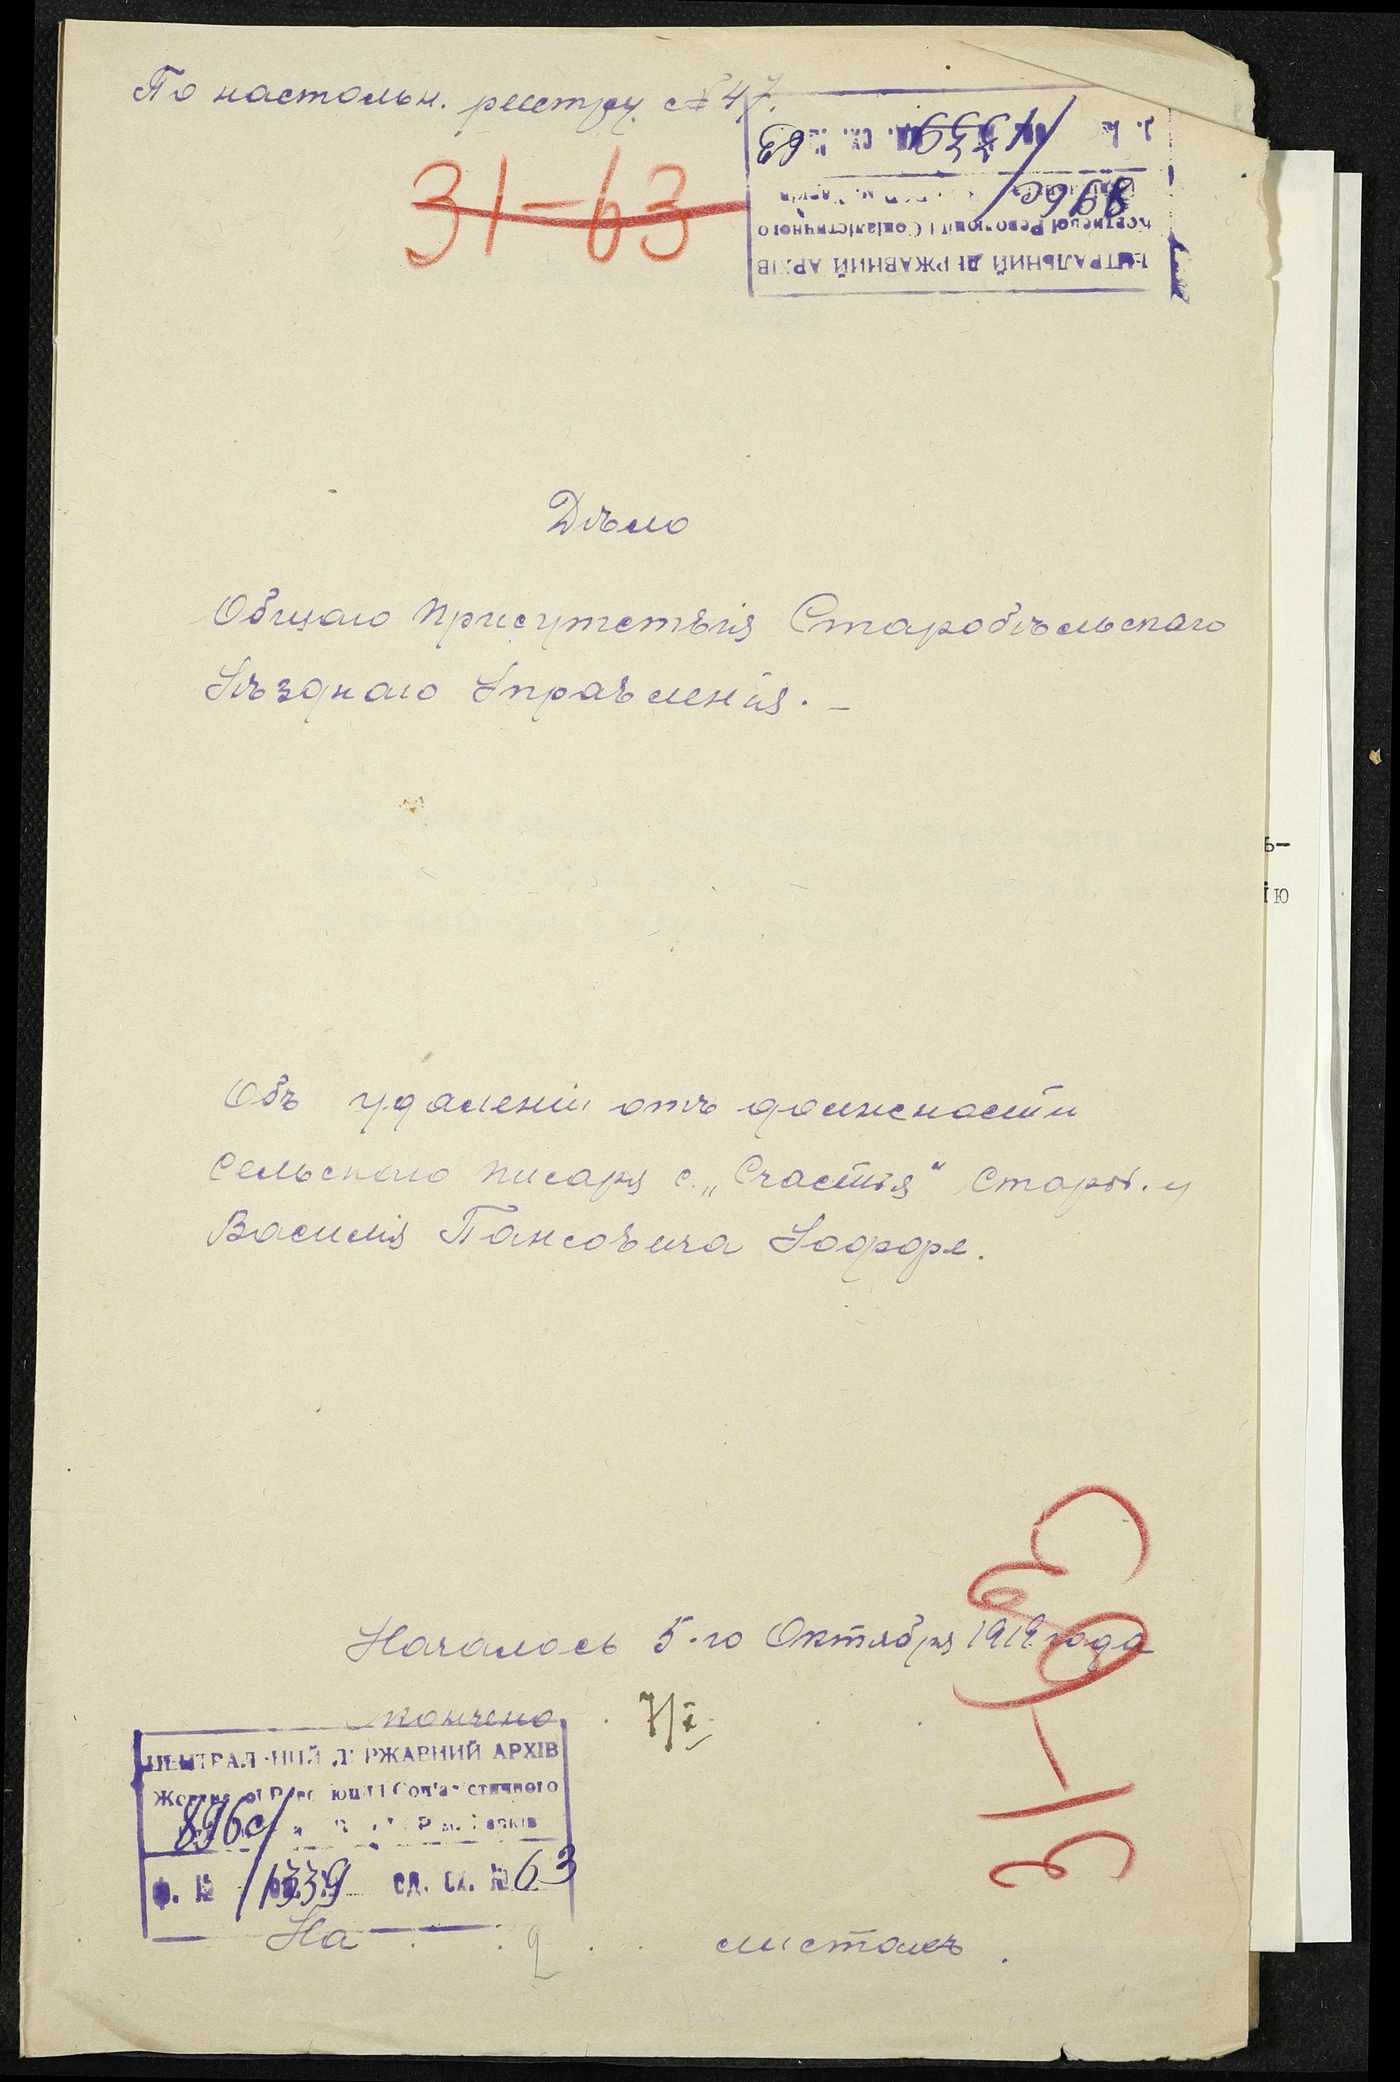 По настольн. реестру № 47.
31-63
ЦЕНТРАЛЬНИЙ ДЕРЖАВНИЙ АРХІВ
Жовтневої Революції і Соціалістичного
896с/
1339 од. сх. № 63
Дѣло
Общаго Присутствія Старобѣльскаго
Уѣзднаго Управленія. –
ѣ-
ію
Объ удаленіи отъ должности
сельскаго писаря с. „Счастья" Староб. у
Василія Павловича
Началось 5-го Октября 1919 года
кончено
31-63
ЦЕНТРАЛЬНИЙ ДЕРЖАВНИЙ АРХІВ
Жовтневої Революції і Соціалістичного
896с/ Р м. Харків
ф. № 1339 од. сх. № 63
На 2 листахъ.